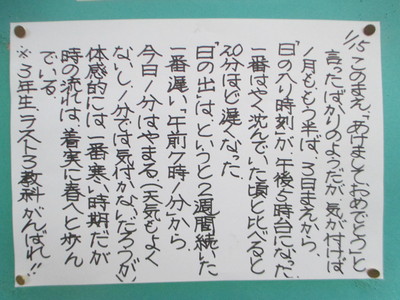 1/15 このまえ、「あけましておめでとう」と
言ったばかりのようだが、気が付けば
1月ももう半ば、3日まえから、
「日の入り時刻」が、午後5時台になった。
一番はやく沈んでいた頃と比べると
20分ほど遅くなった。
「日の出」は、というと2週間続いた
一番遅い「午前7時1分」から
今日1分はやまる（天気もよく
ないし、1分では気付かないだろうが）
体感的には、一番寒い時期だが
時の流れは、着実に春へと歩ん
でいる。
※3年生、ラスト3教科がんばれ!!